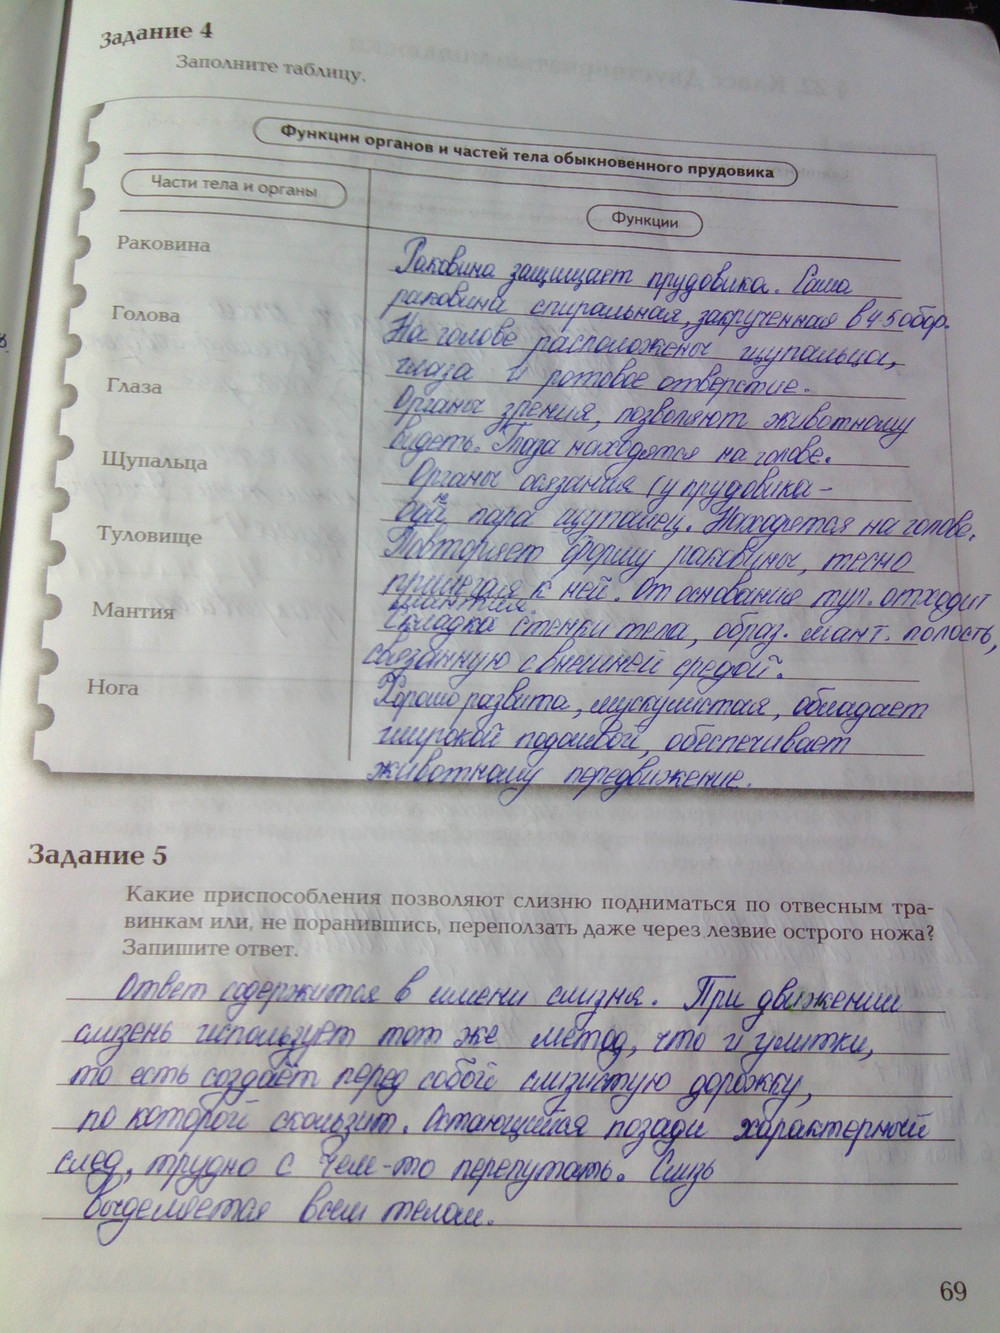 Задание 4
Заполните таблицу.
Функции органов и частей тела обыкновенного прудовика
Части тела и органы
Функции
Раковина
Раковина защищает прудовика. Сама
раковина спиральная, закрученная в 4-5 обор.
Голова
На голове расположены щупальца,
глаза и ротовое отверстие.
Глаза
Органы зрения, позволяют животному
видеть. Глаза находятся на голове.
Щупальца
Органы осязания (у прудовика-
одна пара щупалец. Находятся на голове.
Туловище
Повторяет форму раковины, тесно
прилегая к ней. От основание тул. отходит
мантия.
Мантия
Складка стенки тела, образ. мант. полость,
связанную с внешней средой.
Нога
Хорошо развита, мускулистая, обладает
широкой подошвой, обеспечивает
животному передвижение.
Задание 5
Какие приспособления позволяют слизню подниматься по отвесным тра-
винкам или, не поранившись, переползать даже через лезвие острого ножа?
Запишите ответ.
Ответ содержится в имени слизня. При движении
слизень использует тот же метод, что и улитки,
то есть создаёт перед собой слизистую дорожку,
по которой скользит. Остающийся позади характерный
след, трудно с чем-то перепутать. Слизь
выделяется всем телом.
69